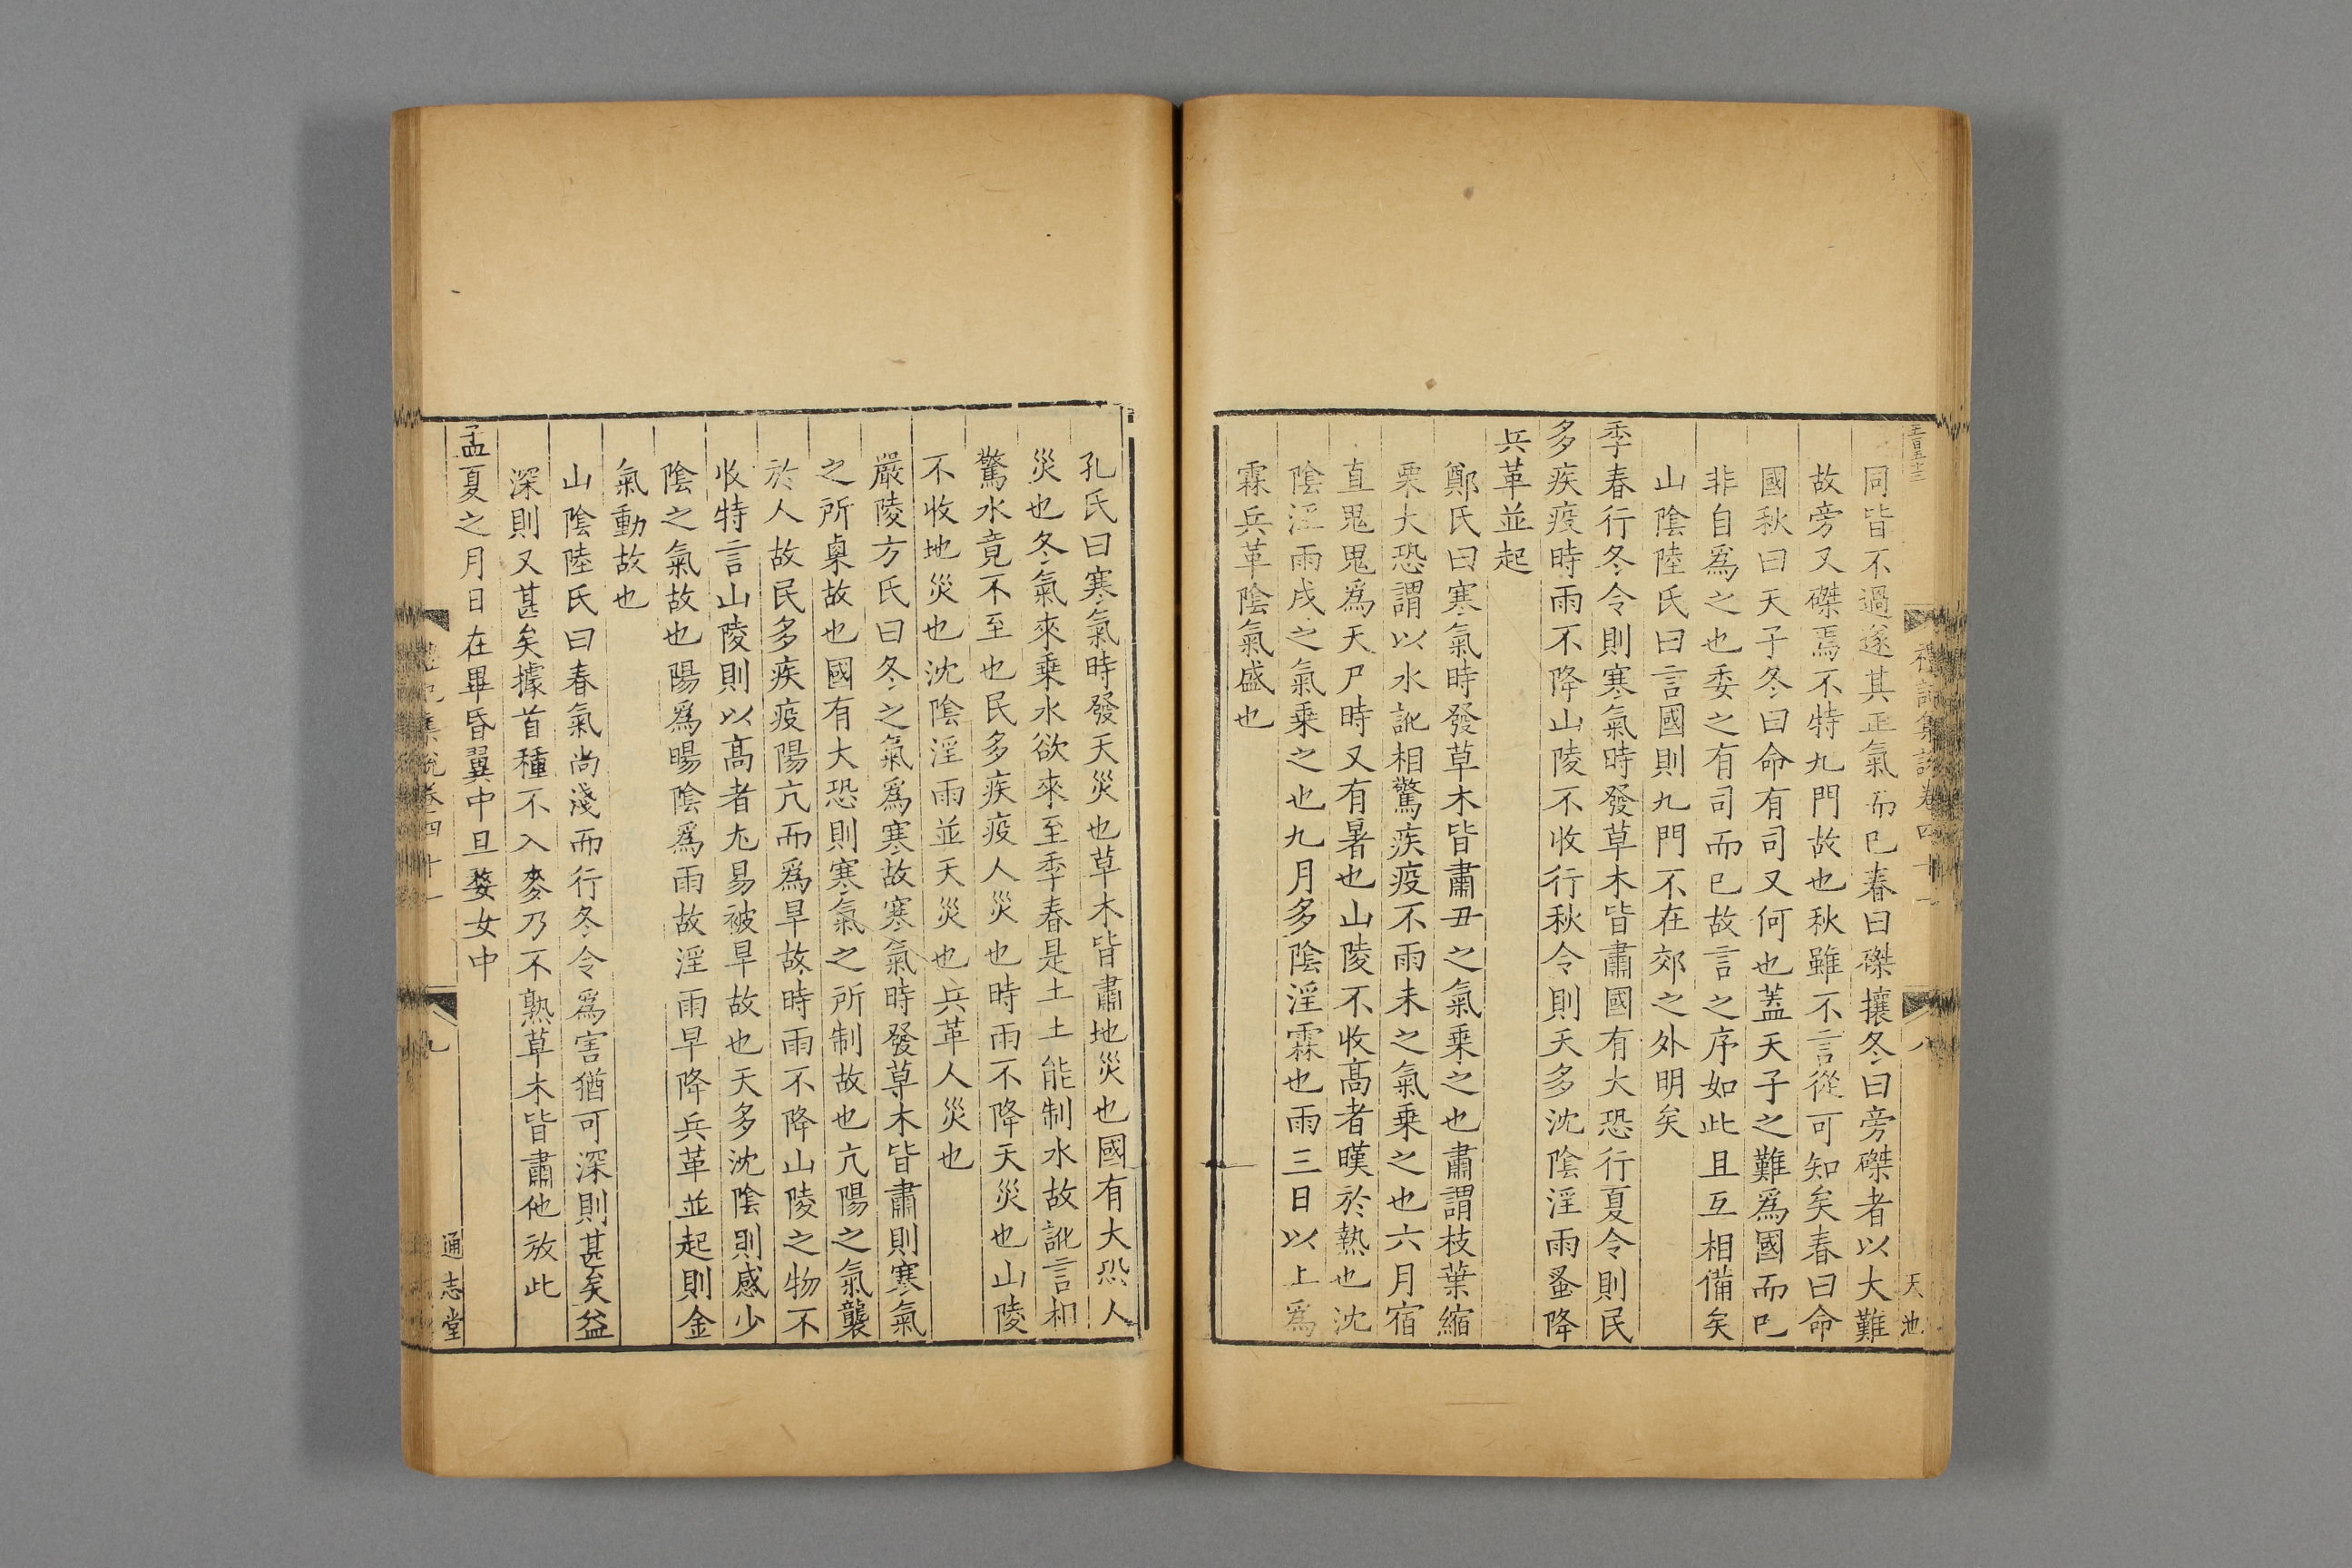 同皆不過遂其正氣而已春曰磔攘冬曰旁磔者以大難
故旁又磔焉不特九門故也秋雖不言從可知矣春曰命
國秋曰天子冬曰命有司又何也蓋天子之難爲國而已
非自爲之也委之有司而已故言之序如此且互相備矣
山陰陸氏曰言國則九門不在郊之外明矣
季春行冬令則寒氣時發草木皆肅國有大恐行夏令則民
多疾疫時雨不降山陵不收行秋令則天多沈陰淫雨蚤降
兵革並起
鄭氏曰寒氣時發草木皆肅丑之氣乗之也肅謂枝葉縮
栗大恐謂以水訛相驚疾疫不雨未之氣乗之也六月宿
直鬼鬼爲天尸時又有暑也山陵不收髙者暵於熱也沈
陰淫雨戌之氣乗之也九月多陰淫霖也雨三日以上爲
霖兵革陰氣盛也
禮記集說卷四十一
八
天池
孔氏曰寒氣時發天災也草木皆肅地災也國有大恐人
災也冬氣來乗水欲來至季春是土土能制水故訛言相
驚水竟不至也民多疾疫人災也時雨不降天災也山陵
不收地災也沈陰淫雨並天災也兵革人災也
嚴陵方氏曰冬之氣爲寒故寒氣時發草木皆肅則寒氣
之所稟故也國有大恐則寒氣之所制故也亢陽之氣襲
於人故民多疾疫陽亢而爲旱故時雨不降山陵之物不
收特言山陵則以髙者尤易被旱故也天多沈陰則感少
陰之氣故也陽爲暘陰爲雨故淫雨早降兵革並起則金
氣動故也
山陰陸氏曰春氣尚淺而行冬令爲害猶可深則甚矣益
深則又甚矣據首種不入麥乃不熟草木皆肅他放此
孟夏之月日在畢昏翼中旦婺女中
禮記集說卷四十一
九
通志堂